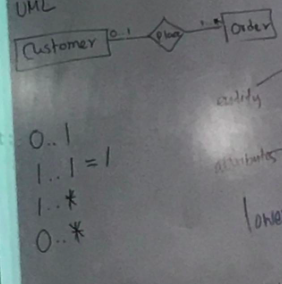 UML
Customer 0..1 place 1..* Order
entity
attributes
0..1
1..1 = 1
1..*
0..*